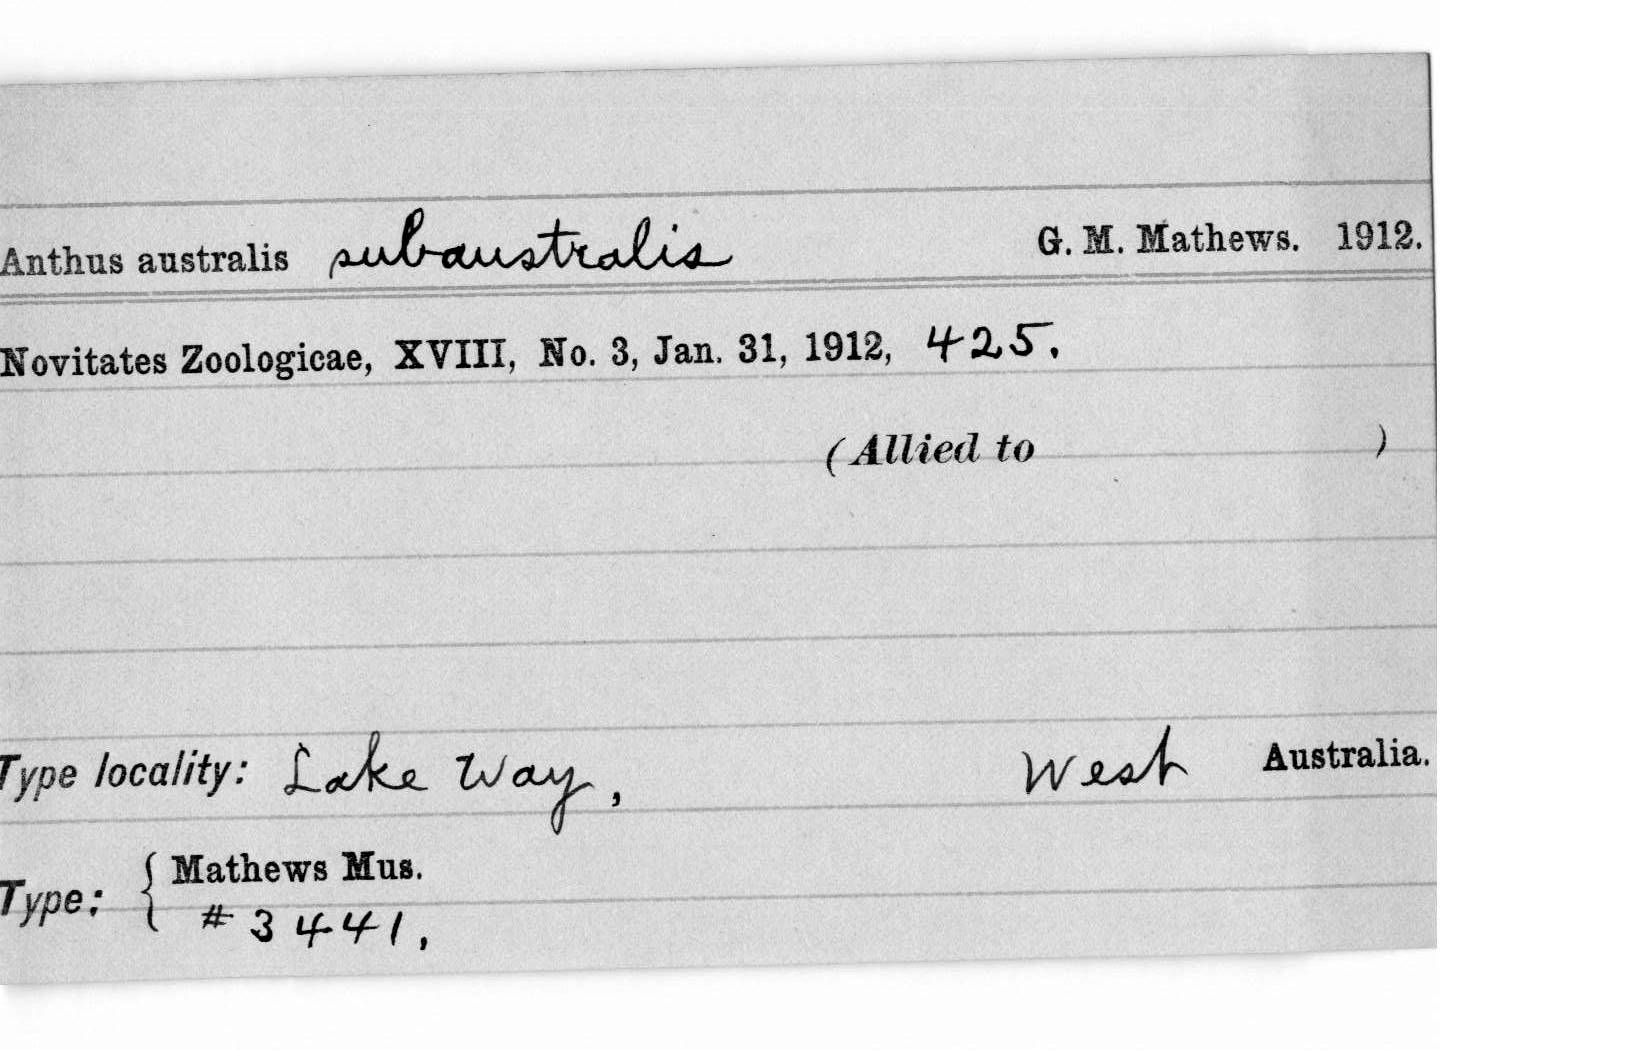 Anthus australis subaustralis G. M. Mathews. 1912.
Novitates Zoologicae, XVIII, No. 3, Jan. 31, 1912, 425.
(Allied to )
Type locality: Lake Way, West Australia.
Type: { Mathews Mus.
#3441.